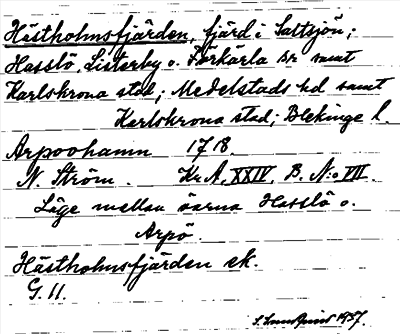 Hästholmsfjärden, fjärd i Saltsjön,;
Hasslö, Listerby o. Förkärla sr samt
Karlskrona stad; Medelstads hd samt
Karlskrona stad; Blekinge l.
Arpoohamn 1718
N. Ström. Kr. A. XXIV, B. N:o VII.
Läge mellan öarna Hasslö o.
Arpö.
Hästholmsfjärden ek.
G. 11.
1937.